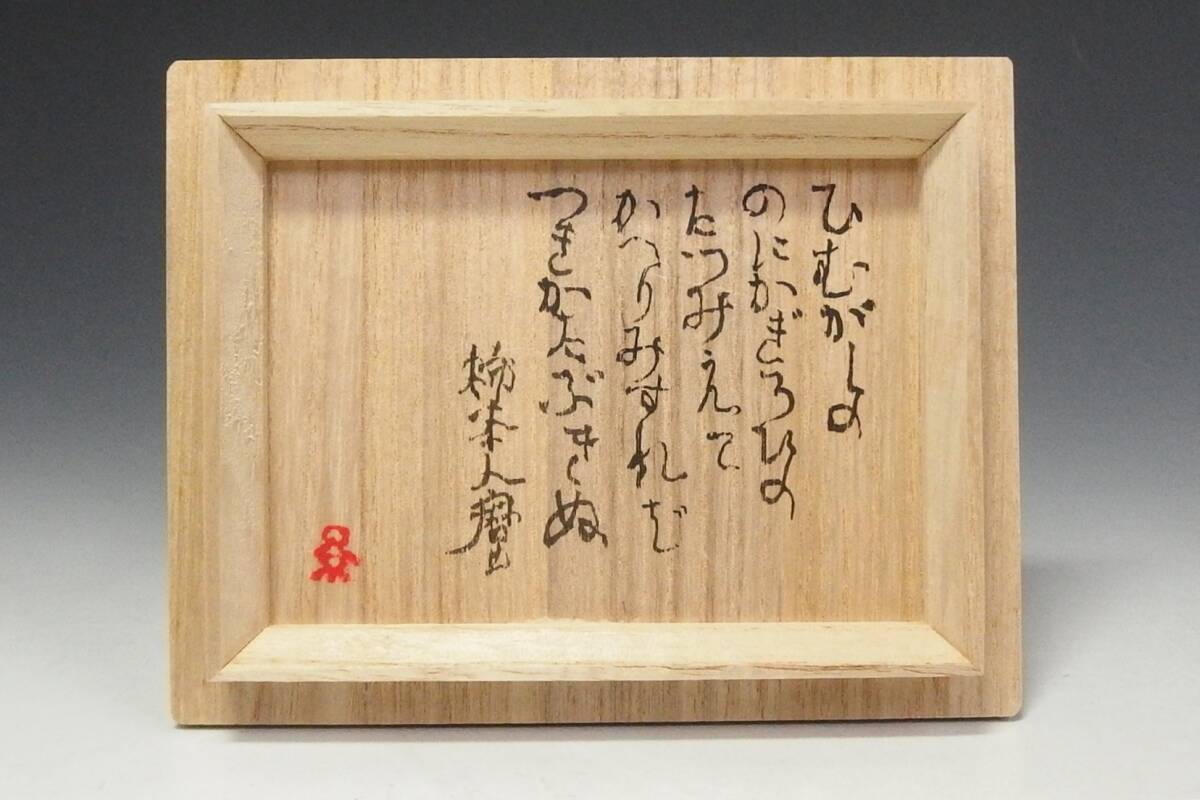 ひむがしの
のにかぎろひの
たつみえて
かへりみすれば
つきかたぶきぬ
柿本人麿